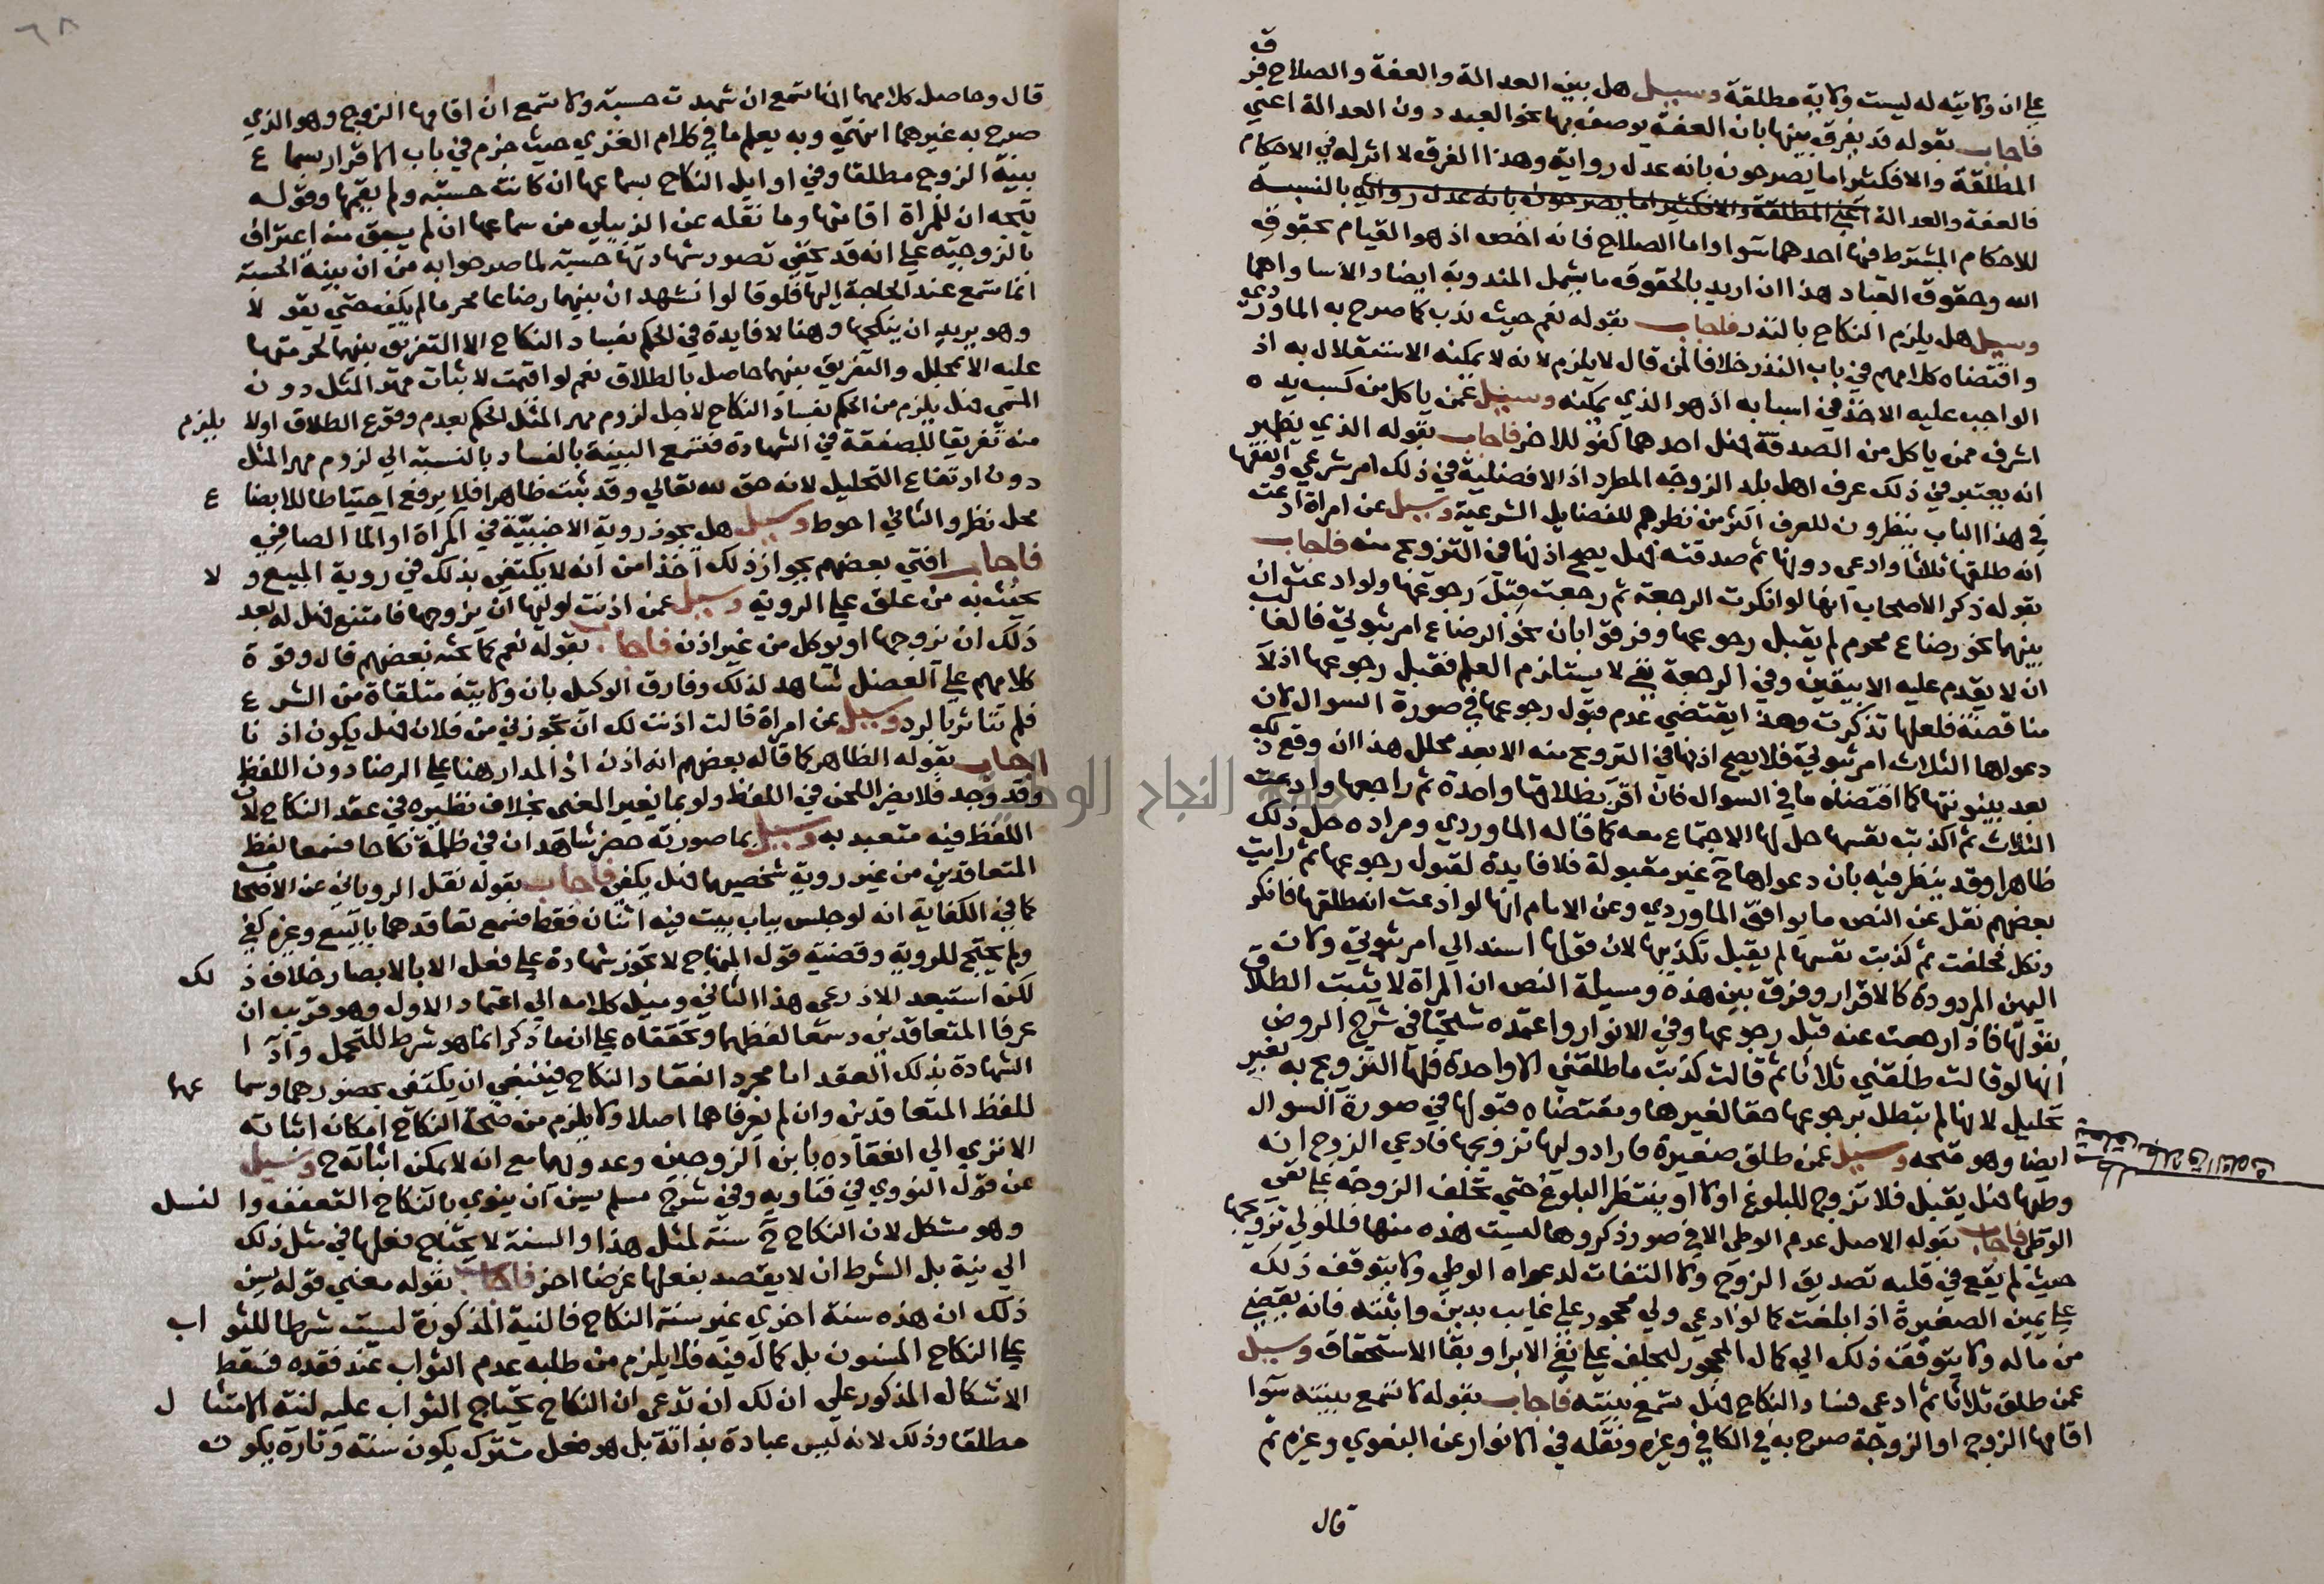 علي ان ولايته له ليست ولاية مطلقة وسيل هل بين العدالة والعفة والصلاح فرق
فاجاب بقوله قد يفرق بينها بان العفة يوصف بها نحو العبد دون العدالة اعني
المطلقة والا فكثيرا ما يصرحون بانه عدل رواية وهذا الفرق لا اثر له في الاحكام
فالعفة والعدالة اعني المطلقة والا فكثيرا ما يصرحون بانه عدل رواية بالنسبة
للاحكام المشترط فيها احدهما سوا واما الصلاح فانه اخص اذ هو القيام بحقوق
الله وحقوق العباد هذا ان اريد بالحقوق ما يشمل المندوبة ايضا والا ساواهما
وسيل هل يلزم النكاح بالنذر فاجاب بقوله نعم حيث ندب كما صرح به الماوردي
واقتضاه كلامهم في باب النذر خلافا لمن قال لا يلزم لانه لا يمكنه الاستقلال به اذ
الواجب عليه الاخذ في اسبابه اذ هو الذي يمكنه وسيل عمن ياكل من كسب يده
اشرف ممن ياكل من الصدقة فهل احدهما كفو للاخر فاجاب بقوله الذي يظهر
انه يعتبر في ذلك عرف اهل بلد الزوجة المطرد اذ الافضلية في ذلك امر شرعي والفقها
في هذا الباب ينظرون للعرف اكثر من نظرهم للفضايل الشرعية وسيل عن امراة ادعت
انه طلقها ثلاثا وادعي دونها ثم صدقته فهل يصح اذنها في التزويج منه فاجاب
بقوله ذكر الاصحاب انها لو انكرت الرجعة ثم رجعت قبل رجوعها ولو ادعت ان
بينهما نحو رضاع محرم لم يقبل رجوعها وفرقوا بان نحو الرضاع امر ثبوتي فالغالب
ان لا يقدم عليه الا بيقين وفي الرجعة نفي لا يستلزم العلم فقبل رجوعها اذ لا
مناقضة فلعلها تذكرت وهذا يقتضي عدم قبول رجوعها في صورة السوال لان
دعواها الثلاث امر ثبوتي فلا يصح اذنها في التزويج منه الا بعد محلل هذا ان وقع ذلك
بعد بينونتها كما اقتضاه ما في السوال فان اقر بطلاقها واحدة ثم راجعها وادعت
الثلاث ثم اكذبت نفسها حل لها الاجتماع معه كما قاله الماوردي ومراده حل ذلك
ظاهرا وقد ينظر فيه بان دعواها ح غير مقبولة فلا فايدة لقبول رجوعها ثم رايت
بعضهم نقل عن النص ما يوافق الماوردي وعن الامام انها لو ادعت انه طلقها فانكر
ونكل فحلفت ثم كذبت نفسها لم يقبل تكذيبها لان قولها استند الي امر ثبوتي ولان
اليمين المردودة كالاقرار وفرق بين هذه ومسيلة النص ان المراة لا يثبت الطلاق
بقولها فاذا رجعت عنه قبل رجوعها وفي الانوار واعتمده شيخنا في شرح الروض
انها لو قالت طلقني ثلاثا ثم قالت كذبت ما طلقني الا واحدة فلها التزويج به بغير
تحليل لانها لم تبطل برجوعها حقا لغيرها ومقتضاه قبولها في صورة السوال
ايضا وهو متجه وسيل عمن طلق صغيرة فاراد وليها تزويجها فادعي الزوج انه
وطيها فهل يقبل فلا تزوج للبلوغ اولا او ينتظر البلوغ حتي تحلف الزوجة علي نفي
الوطي فاجاب بقوله الاصل عدم الوطي الا في صور ذكروها ليست هذه منها فللولي تزويجها
حيث لم يقع في قلبه تصديق الزوج ولا التفات لدعواه الوطي ولا يتوقف ذلك
علي يمين الصغيرة اذا بلغت كما لو ادعي ولي محجور علي غايب بدين واثبته فانه يقضي
من ماله ولا يتوقف ذلك الي كمال المحجور ليحلف علي نفي الابرا وبقا الاستحقاق وسيل
عمن طلق ثلاثا ثم ادعي فساد النكاح فهل تسمع بينته فاجاب بقوله لا تسمع بينته سوا
اقامها الزوج او الزوجة صرح به في الكافي وغيره ونقله في الانوار عن البغوي وغيره ثم
قال
٦٨
قال وحاصل كلامهما انها تسمع ان شهدت حسبة ولا تسمع ان اقامها الزوج وهو الذي
صرح به غيرهما انتهي وبه يعلم ما في كلام الغزي حيث جزم في باب الاقرار بسماع
بينة الزوج مطلقا وفي اوايل النكاح بسماعها ان كانت حسبة ولم يقمها وقوله
يتجه ان للمراة اقامتها وما نقله عن الزبيلي من سماعها ان لم يسبق منه اعتراف
بالزوجية علي انه قد يخفي تصور شهادتها حسبة لما صرحوا به من ان بينة الحسبة
انما تسمع عند الحاجة اليها فلو قالوا نشهد ان بينهما رضاعا محرما لم يكف حتي يقولا
وهو يريد ان ينكحها وهنا لا فايدة في الحكم بفساد النكاح الا التفريق بينهما لحرمتها
عليه الا بمحلل والتفريق بينهما حاصل بالطلاق نعم لو اقيمت لاثبات مهر المثل دون
المسمي فهل يلزم من الحكم بفساد النكاح لاجل لزوم مهر المثل الحكم بعدم وقوع الطلاق اولا يلزم
منه تفريقا للصفقة في الشهادة فتسمع البينة بالفساد بالنسبة الي لزوم مهر المثل
دون ارتفاع التحليل لانه حق لله تعالي وقد ثبت ظاهرا فلا يرفع احتياطا للابضاع
محل نظر والثاني احوط وسيل هل يجوز روية الاجنبية في المراة او الما الصافي
فاجاب افتي بعضهم بجواز ذلك اخذا من انه لا يكتفي بذلك في روية المبيع ولا
يحنث به من علق علي الروية وسيل عمن اذنت لوليها ان يزوجها فامتنع فهل له بعد
ذلك ان يزوجها او يوكل من غير اذن فاجاب بقوله نعم كما بحثه بعضهم قال وقوة
كلامهم علي العضل شاهد لذلك وفارق الوكيل بان ولايته متلقاة من الشرع
فلم تتاثر بالرد وسيل عن امراة قالت اذنت لك ان تجوزني من فلان فهل يكون اذنا
اجاب بقوله الظاهر كما قاله بعضهم انه اذن اذ المدار هنا علي الرضا دون اللفظ
وقد وجد فلا يضر اللحن في اللفظ ولو بما يغير المعني بخلاف نظيره في عقد النكاح لان
اللفظ فيه متعبد به وسيل بما صورته حضر شاهدان في ظلمة نكاحا فسمعا لفظ
المتعاقدين من غير روية شخصيهما فهل يكفي فاجاب بقوله نقل الروياني عن الاصحاب
كما في الكفاية انه لو جلس بباب بيت فيه اثنان فقط فسمع تعاقدهما بالبيع وغيره كفي
ولم يحتج للروية وقضية قول المنهاج لا تجوز شهادة علي فعل الا بالابصار خلاف ذلك
لكن استبعد الاذرعي هذا الثاني وميل كلامه الي اعتماد الاول وهو قريب ان
عرفا المتعاقدين وسمعا لفظهما وتحققاه علي ان ما ذكر انما هو شرط للتحمل واذا
الشهادة بذلك العقد اما مجرد انعقاد النكاح فينبغي ان يكتفي بحضورهما وسماعهما
للفظ المتعاقدين وان لم يعرفاهما اصلا ولا يلزم من صحة النكاح امكان اثباته
الا تري الي انعقاده بابن الزوجين وعدولهما مع انه لا يمكن اثباته ح وسيل
عن قول النووي في فتاويه وفي شرح مسلم يسن ان ينوي بالنكاح التعفف والنسل
وهو مشكل لان النكاح ح سنة لمثل هذا والسنة لا يحتاج فعلها في مثل ذلك
الي نية بل الشرط ان لا يقصد بفعلها غرضا اخر فاجاب بقوله معني قوله يسن
ذلك ان هذه سنة اخري غير سنة النكاح فالنية المذكورة ليست شرطا للثواب
علي النكاح المسنون بل كمال فيه فلا يلزم من طلبه عدم الثواب عند فقده فسقط
الاشكال المذكور علي ان لك ان تدعي ان النكاح يحتاج الثواب عليه لنية الامتثال
مطلقا وذلك لانه ليس عبادة بذاته بل هو فعل مشترك يكون سنة وتارة يكون